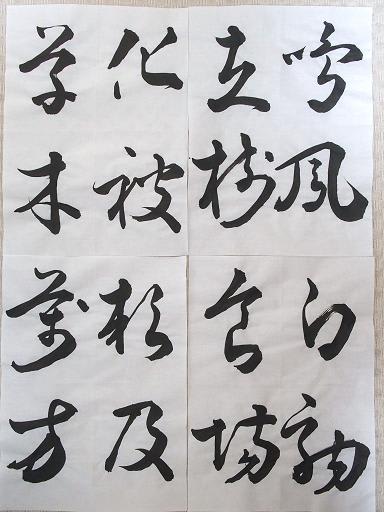 鳴鳳
在樹
白駒
食場
化被
草木
賴及
萬方